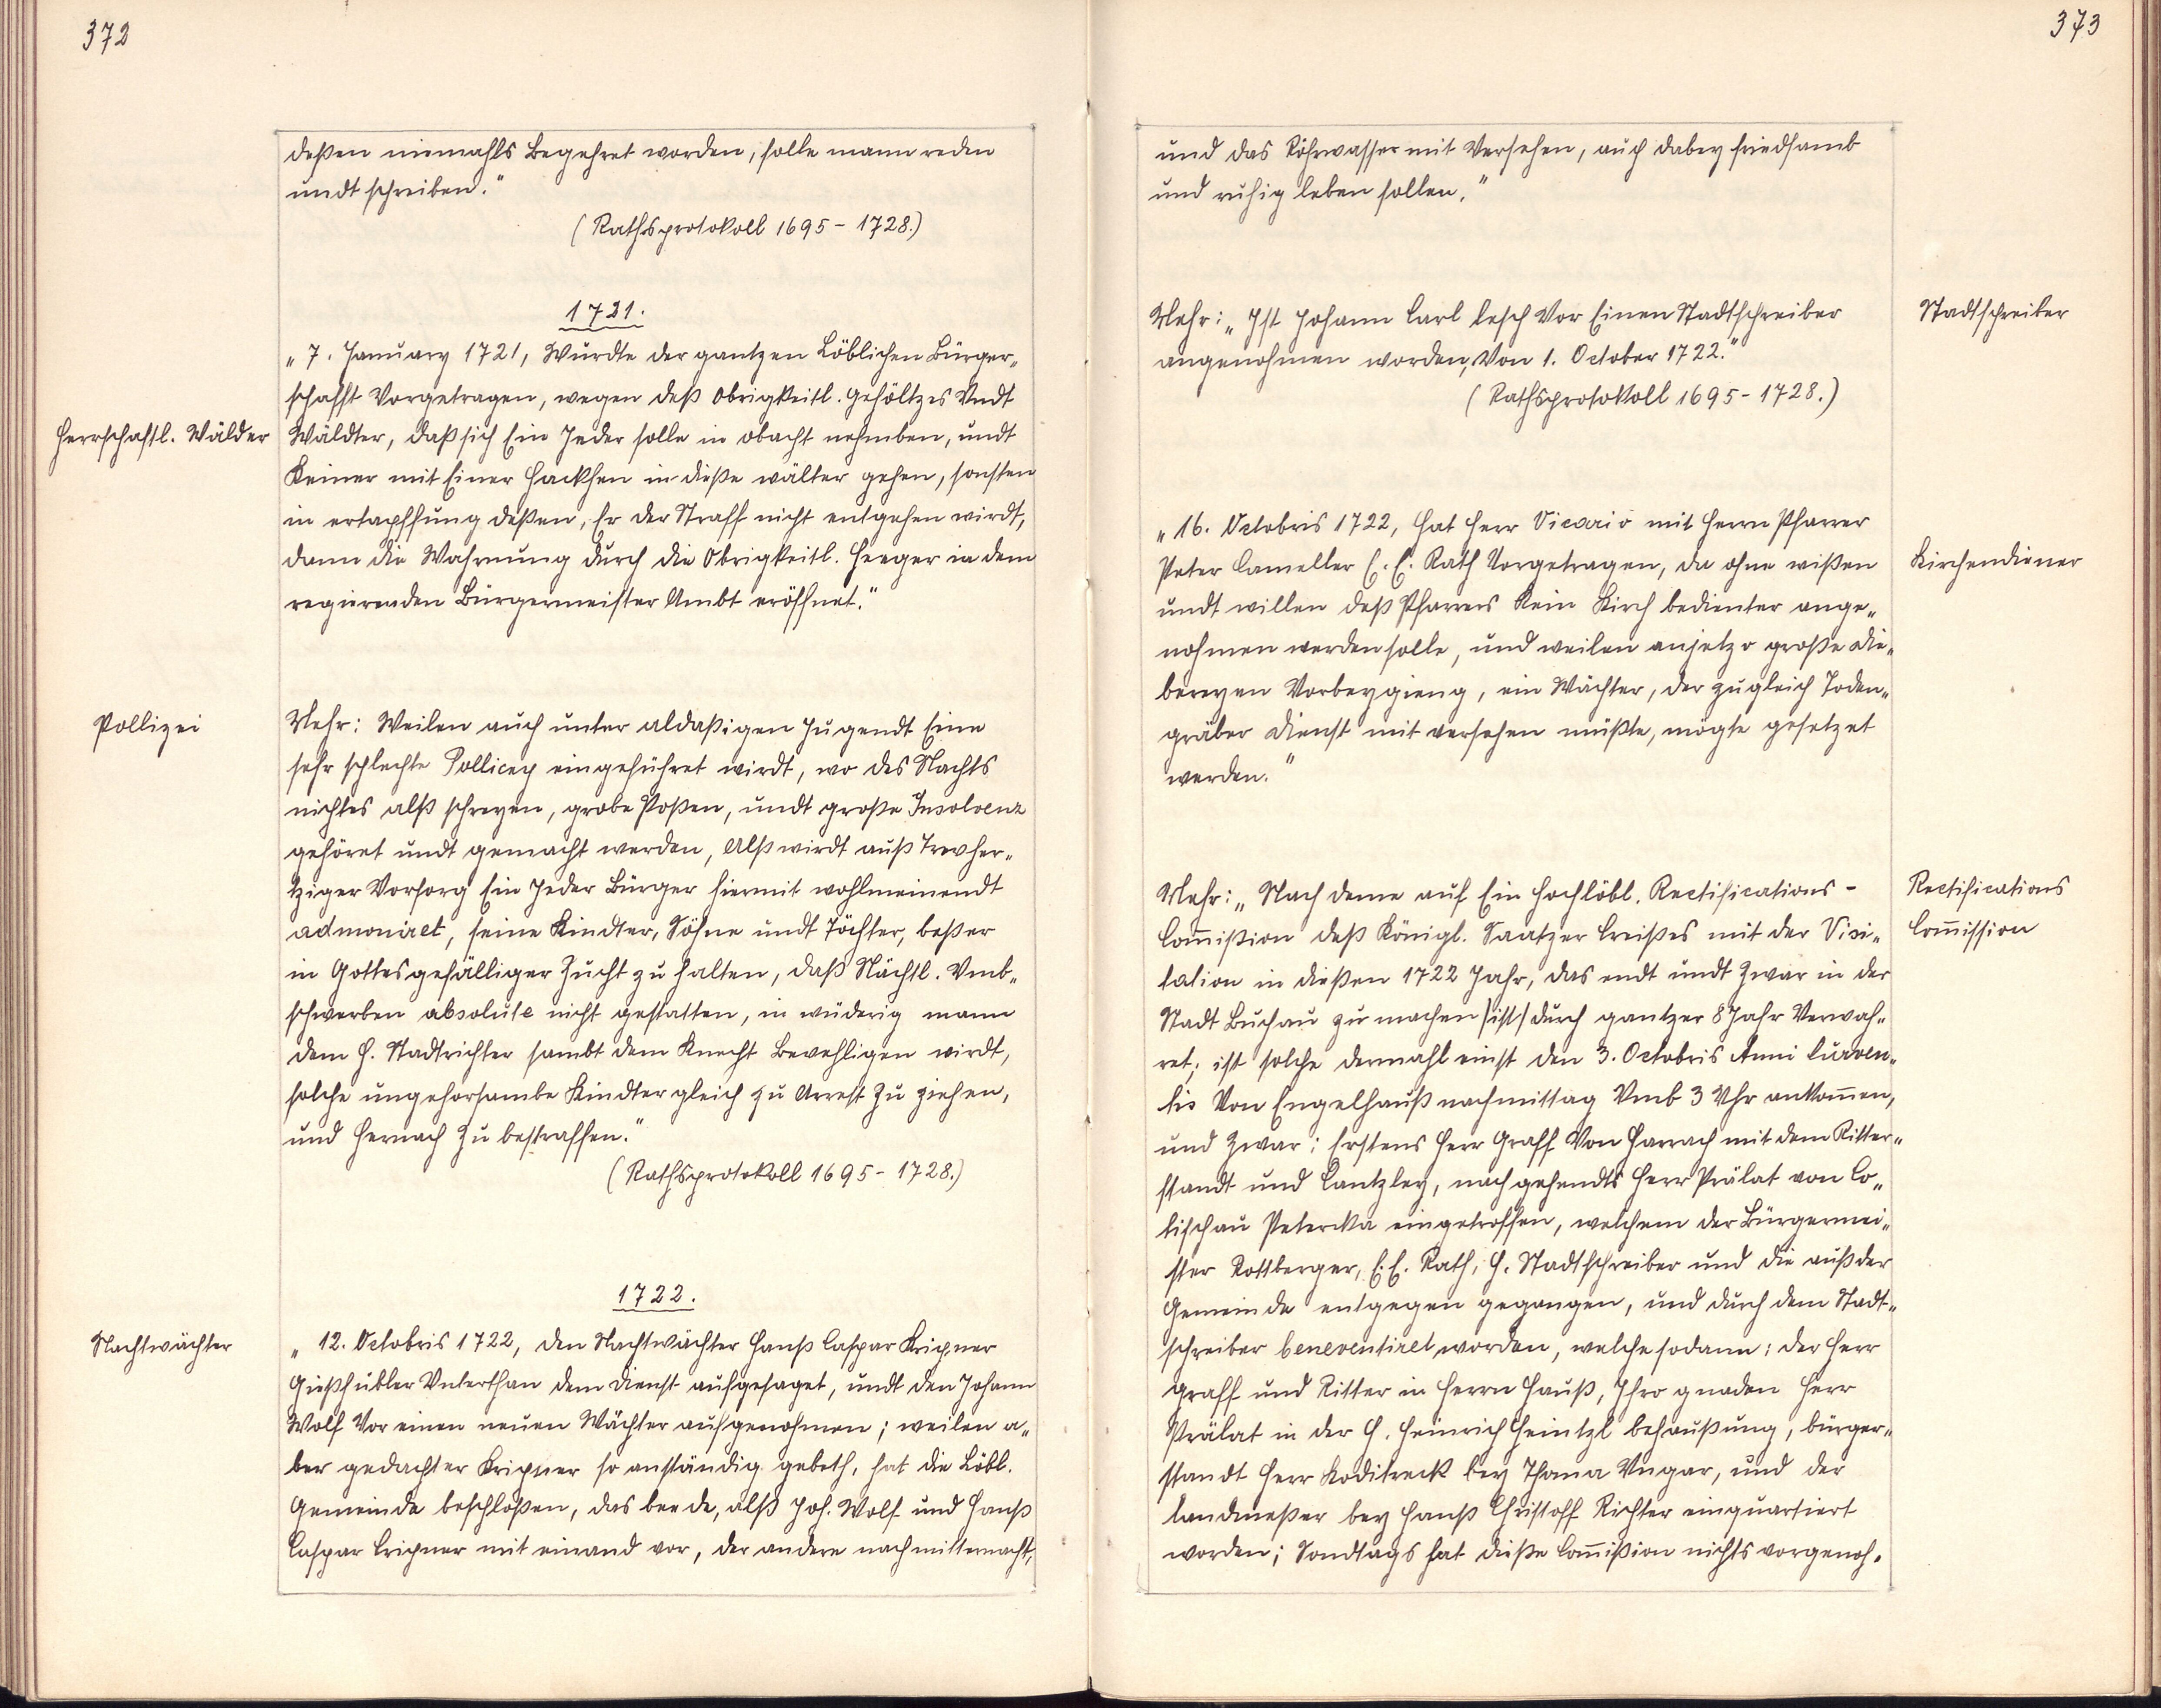 372
deßen niemahls Begehret worden, solle mann reden
undt schreiben."
(Rathsprotokoll 1695-1728.)
1721.
"7. January 1721, Wurdte der gantzen Löblichen Bürger„
schafft Vorgetragen, wegen deß Obrigkeitl. Gehöltzes Undt
Herrschaftl. Wälder
Wäldter, daß sich Ein Jeder solle in obacht nehmben, undt
Keiner mit Einer Hackhen in dieße wälter gehen, sonsten
in ertapffung deßen, Er der Straff nicht entgehen wirdt,
dann die Wahrnung durch die Obrigkeitl. Heeger in dem
regierenden Bürgermeister Ambt eröffnet."
Pollizei
Mehr: Weilen auch unter aldaßigen Jugendt Eine
sehr schlechte Pollicey eingeführet wirdt, wo des Nachts
nichtes alß schreyen, grobe Poßen, undt große Insolvenz
gehöret undt gemacht werden, Alß wirdt auß Trevher„
tziger Vorsorg Ein Jeder Bürger hiermit wohlmeinendt
admoniret, seine Kindter, Söhne undt Töchter, beßer
in Gottesgefälliger Zucht zu halten, daß Nächtl. Vmb„
schwerben absolute nicht gestatten, in wüderig mann
dem H. Stadtrichter sambt dem Knecht Bevehligen wirdt,
solche ungehorsambe Kindter gleich zu Arrest Zu ziehen,
und Hernach Zu bestraffen."
(Rathsprotokoll 1695-1728.)
1722.
Nachtwächter
"12. Octobris 1722, den Nachtwächter Hanß Caspar Kripner
Gießhübler Unterthan dem Dienst aufgesaget, undt den Johann
Wolf Vor einen neuen Wächter aufgenohmen; weilen a„
ber gedachter Kripner so anständig gebeth, hat die Löbl.
Gemeinde beschloßen, das beede, alß Joh. Wolf und Hanß
Caspar Cripner mit einand vor, der andere nach mitternacht,
373
und das Röhrwasser mit Versehen, auch dabey friedsamb
und ruhig leben sollen."
Mehr: "Ist Johann Carl Lesch Vor Einen Stadtschreiber
Stadtschreiber
angenohmen worden, Von 1. October 1722."
(Rathsprotokoll 1695-1728.)
"16. Octobris 1722, hat Herr Vicario mit Herrn Pfarrer
Peter Cameller E. E. Rath Vorgetragen, da ohne wißen
Kirchendiener
undt willen deß Pfarrers Kein Kirch bedienter ange„
nohmen werden solle, und weilen anjetzo große die„
bereyen Vorbeygieng, ein Wächter, der zugleich Toden„
gräber dienst mit versehen müßte, mögte gesetzet
werden."
Mehr: "Nach deme auf Ein Hochlöbl. Rectifications-
Rectifications
Com̅ißion deß Königl. Saatzer Creißes mit der Visi„
Com̅ission
tation in dießen 1722 Jahr, das endt undt Zwar in der
Stadt Buchau zu machen /:ist:/ durch gantzer 8 Jahr Verwah„
ret; ist solche dermahl einst den 3. Octobris Anni Curren„
tis Von Engelhauß nachmittag Vmb 3 Uhr ankom̅en,
und Zwar: Erstens Herr Graff Von Harrach mit dem Ritter„
standt und Cantzley, nachgehendts Herr Prälat von Co„
tischau Peterka eingetroffen, welchem der Bürgermei„
ster Rottberger, E. E. Rath, H. Stadtschreiber und die auß der
Gemeinde entgegen gegangen, und durch dem Stadt„
schreiber beneventiret worden, welche sodann: der Herr
Graff und Ritter in Herrn Hauß, Ihro gnaden Herr
Prälat in der H. Heinrich Heintzl behaußung, bürger„
standt Herr Koditreck bey Thoma Ungar, und der
Landmeßer bey Hanß Christoff Richter einquartiert
worden; Sondtags hat dieße Com̅ißion nichts vorgenoh„